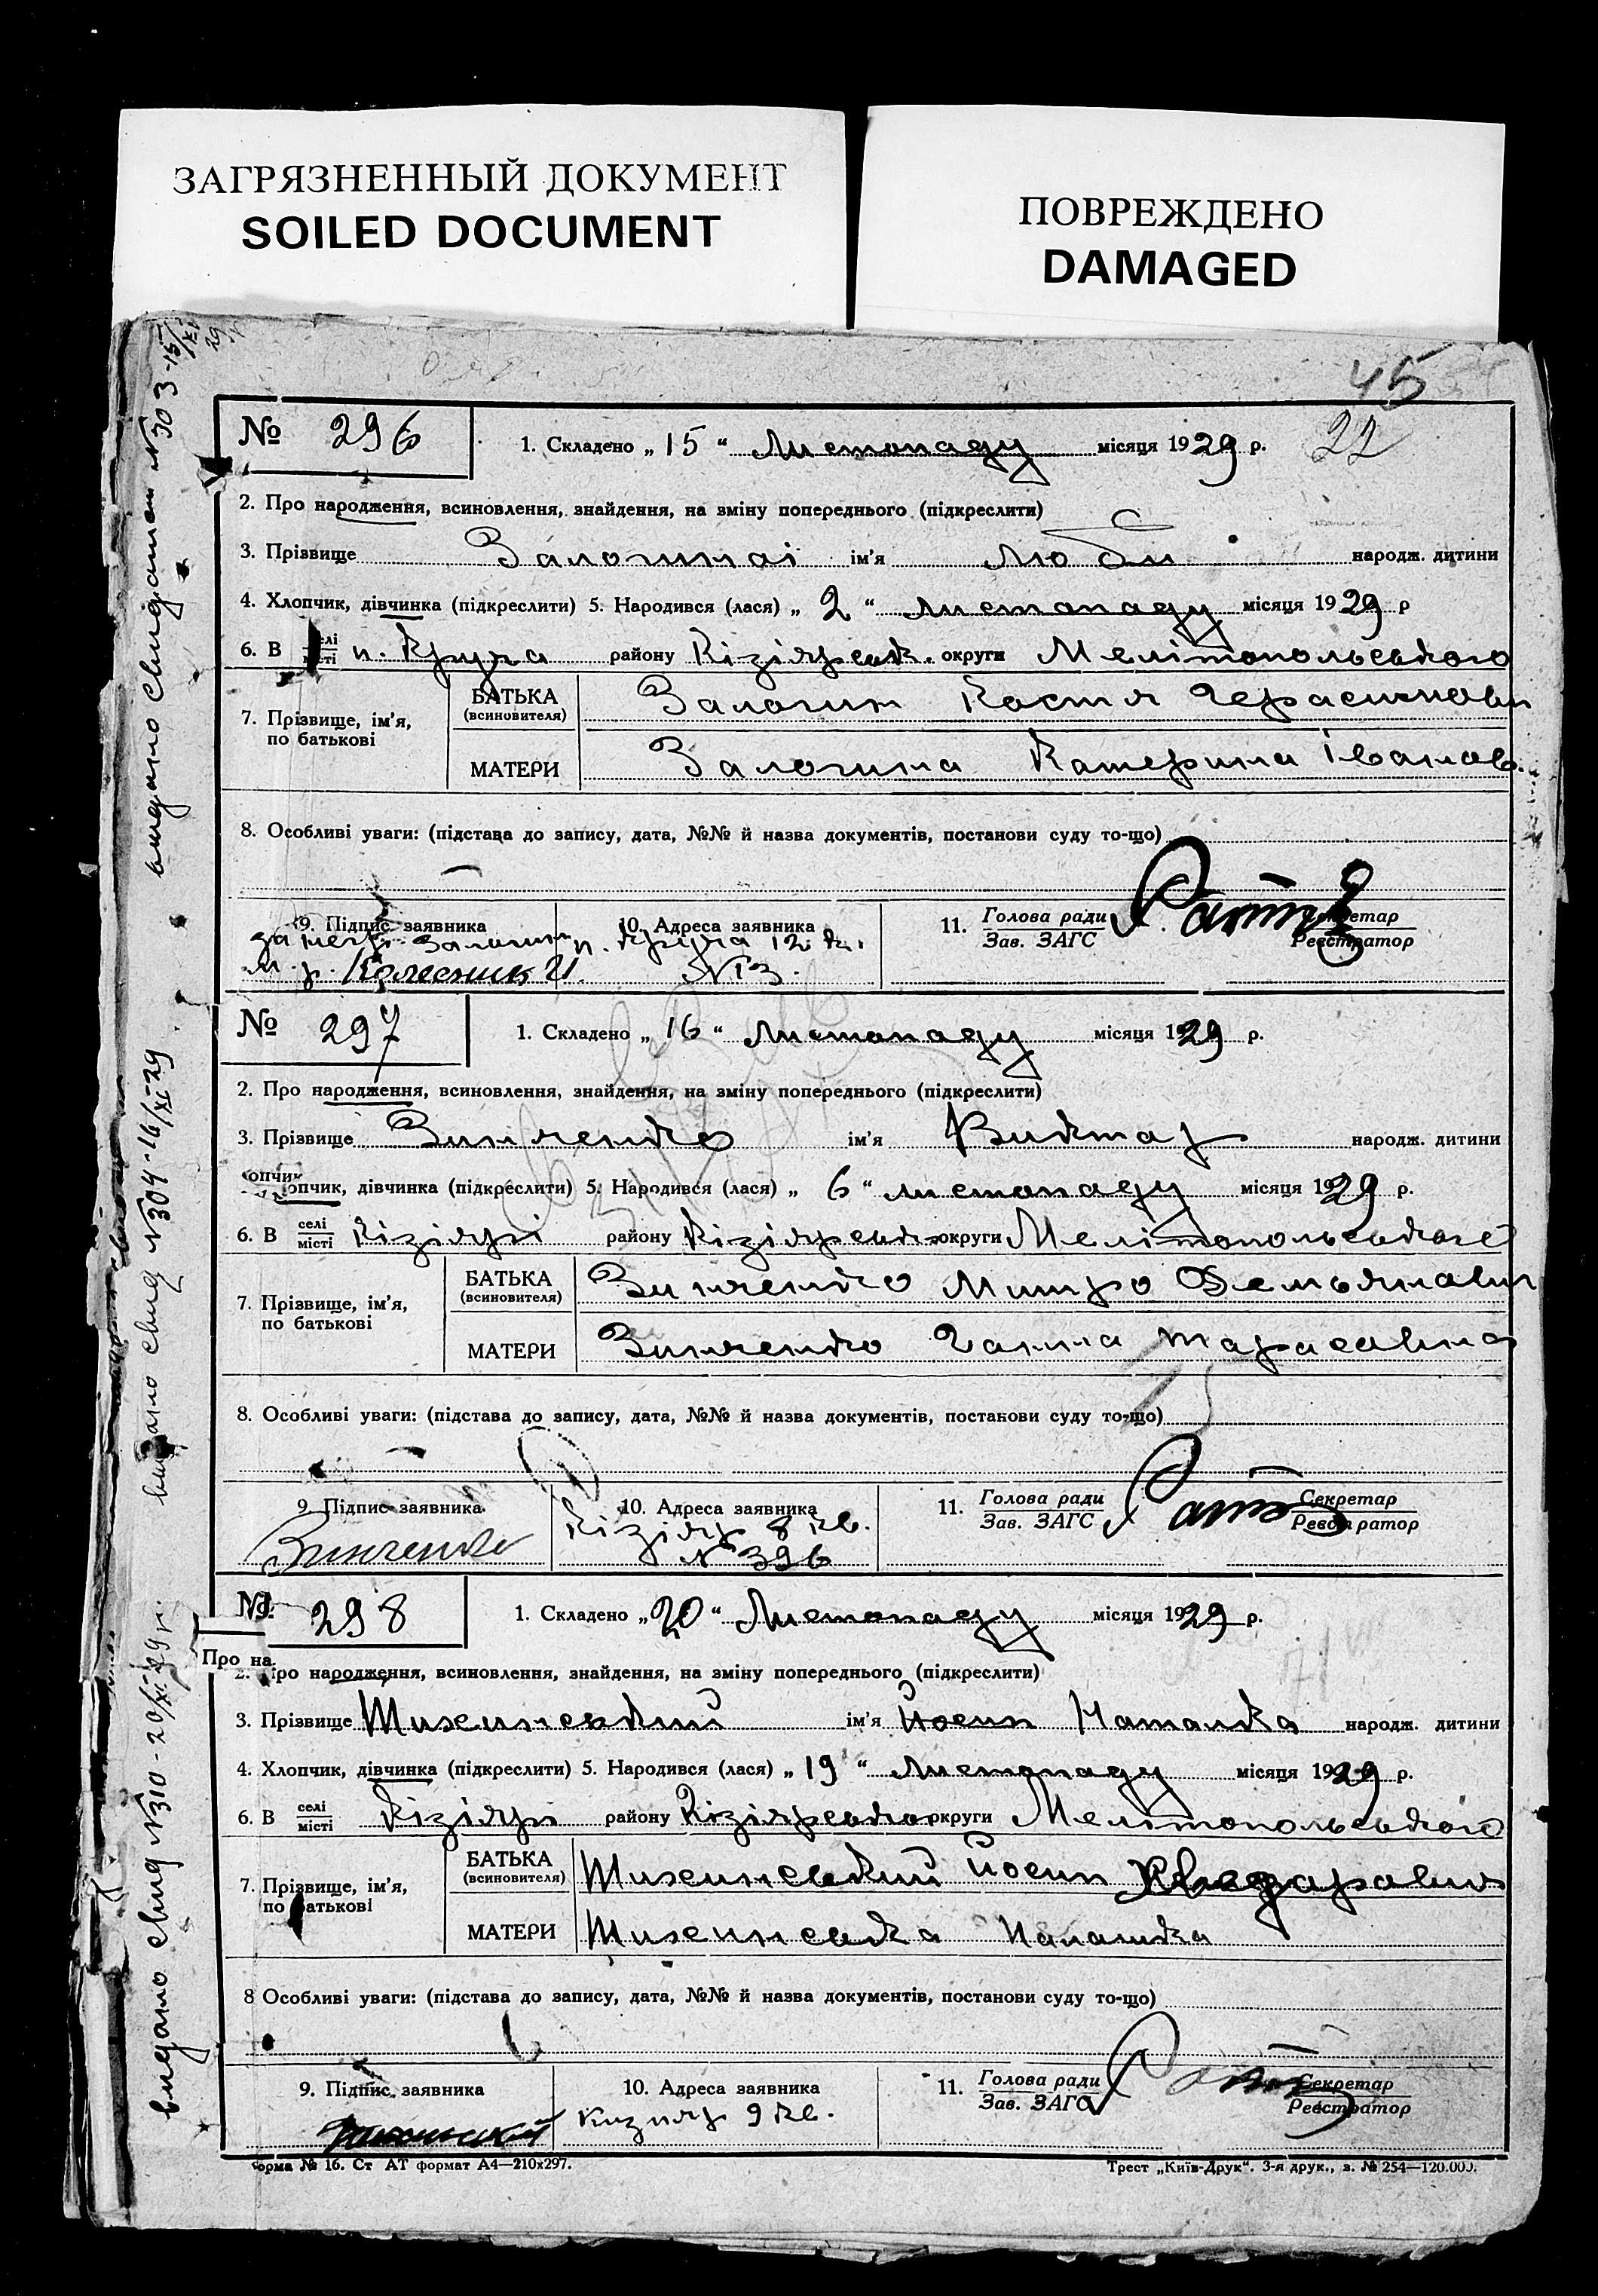 ЗАГРЯЗНЕННЫЙ ДОКУМЕНТ
SOILED DOCUMENT
ПОВРЕЖДЕНО
DAMAGED
45
22
№ 296
1. Складено „ 15 “ Листопаду місяця 1929 р.
2. Про народження, всиновлення, знайдення, на зміну попереднього (підкреслити)
3. Прізвище ім’я Люби народж. дитини
4. Хлопчик, дівчинка (підкреслити) 5. Народився (лася) „ 2 “ листопаду місяця 1929 р
6. В селі місті п. Круча району Кізіярськ. округи Мелітопольського
7. Прізвище, ім’я, по батькові
БАТЬКА (всиновителя) Залогин Костя Герасимович
МАТЕРИ Залогина Катерина Іванов.
8. Особливі уваги: (підстава до запису, дата, №№ й назва документів, постанови суду то-що)
9. Підпис заявника
10. Адреса заявника
11. Голова ради Зав. ЗАГС
Секретар Реєстратор
м. р. Колесник И.
№ 13.
видано свид N 303-15/XI 29
№ 297
1. Складено „ 16 “ Листопаду місяця 1929 р.
2. Про народження, всиновлення, знайдення, на зміну попереднього (підкреслити)
3. Прізвище Зинченко ім’я Виктор народж. дитини
опчик, дівчинка (підкреслити) 5. Народився (лася) „ 6 “ листопаду місяця 1929 р.
6. В селі місті Кізіярі району Кізіярсько округи Мелітопольського
7. Прізвище, ім’я, по батькові
БАТЬКА (всиновителя) Зинченко Митро Демьянович
МАТЕРИ Зинченко Ганна Тарасовина
8. Особливі уваги: (підстава до запису, дата, №№ й назва документів, постанови суду то-що)
9. Підпис заявника
10. Адреса заявника
11. Голова ради Зав. ЗАГС
Секретар Реєстратор
Зинченко
Кізіяр 8 кв.
№ 396
видано свид N 304-16/XI-29
№ 298
1. Складено „20“ Листопаду місяця 1929 р.
Про на
2. Про народження, всиновлення, знайдення, на зміну попереднього (підкреслити)
3. Прізвище ім’я Йосип Наталка народж. дитини
4. Хлопчик, дівчинка (підкреслити) 5. Народився (лася) „ 19 “ листопаду місяця 1929 р.
6. В селі місті Кізіярі району Кізіярсько округи Мелітопольського
7. Прізвище, ім’я, по батькові
БАТЬКА (всиновителя) Йосип
МАТЕРИ
8 Особливі уваги: (підстава до запису, дата, №№ й назва документів, постанови суду то-що)
9. Підпис заявника
10. Адреса заявника
11. Голова ради Зав. ЗАГС
Секретар Реєстратор
Кизияр 9 кв.
видано свид N 310-20/XI 29 р.
орма № 16. Ст АТ формат А4—210х297.
Трест „Київ-Друк“. 3-я друк., з. № 254—120.000.